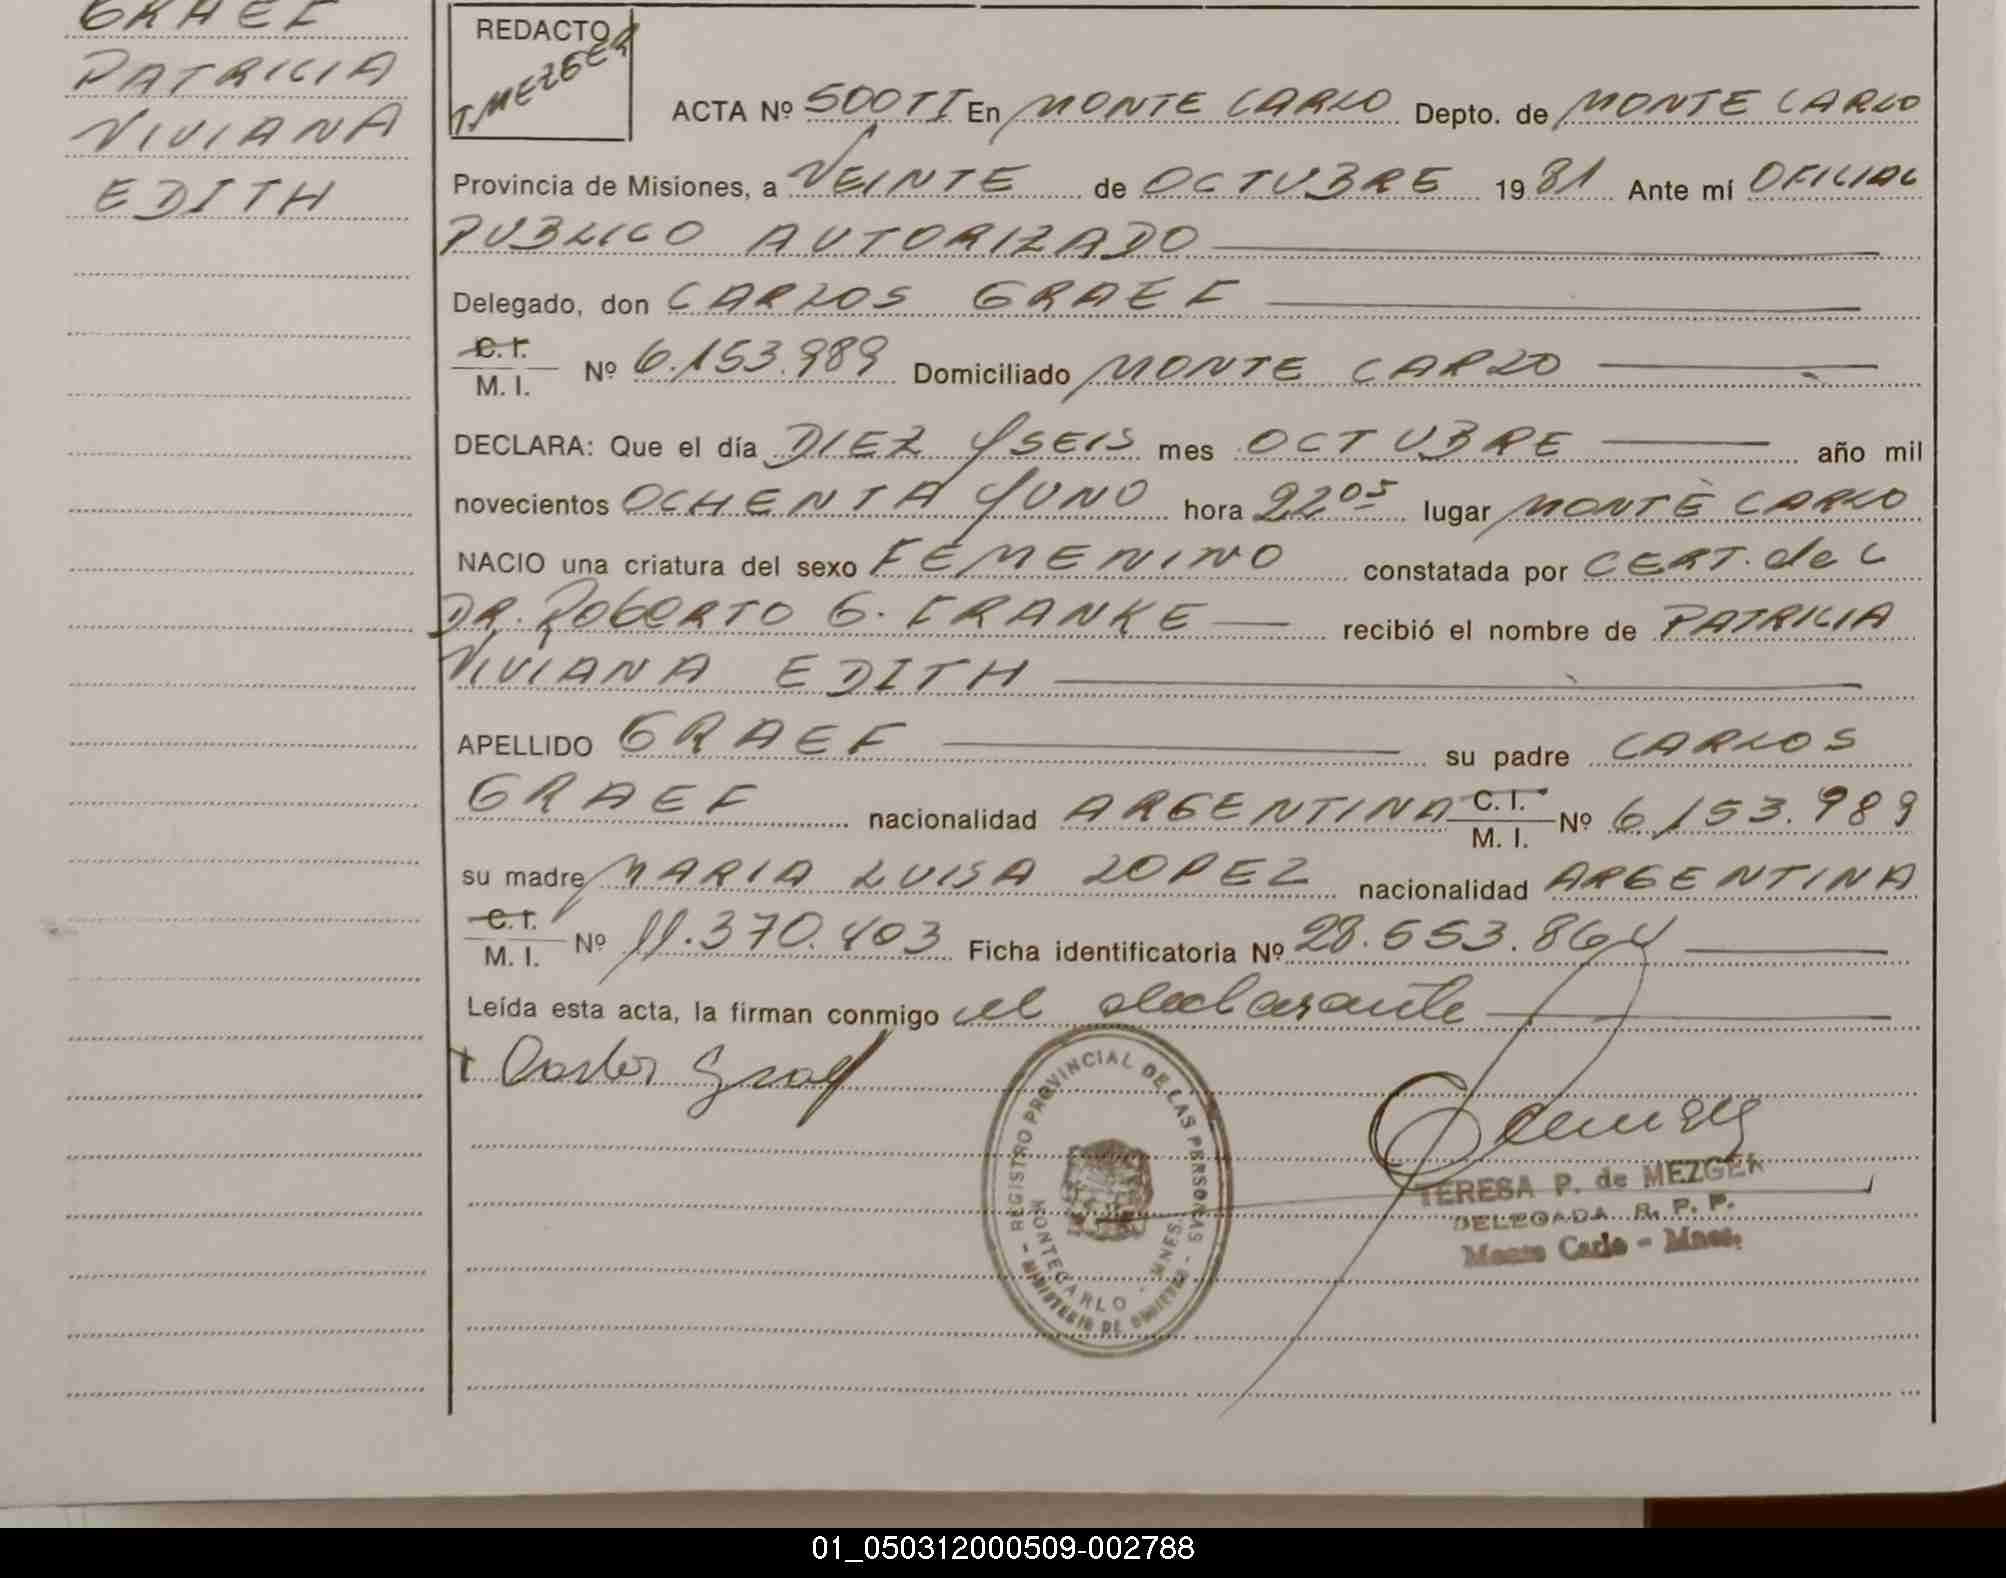 GRAEF
PATRICIA
VIVIANA
EDITH
REDACTO
T. MEZGER
ACTA Nº 500 TI En MONTE CARLO Depto. de MONTE CARLO
Provincia de Misiones, a VEINTE de OCTUBRE 1981 Ante mí OFICIAL
PUBLICO AUTORIZADO
Delegado, don CARLOS GRAEF
C. I.
M. I. Nº 6.153.989 Domiciliado MONTE CARLO
DECLARA: Que el día DIEZ Y SEIS mes OCTUBRE año mil
novecientos OCHENTA Y UNO hora 22 05 lugar MONTE CARLO
NACIO una criatura del sexo FEMENINO constatada por CERT. del
DR. ROBERTO G. FRANKE recibió el nombre de PATRICIA
VIVIANA EDITH
APELLIDO GRAEF su padre CARLOS
GRAEF nacionalidad ARGENTINA C. I. M. I. Nº 6.153.989
su madre MARIA LUISA LOPEZ nacionalidad ARGENTINA
C. I.
M. I. Nº 11.370.403 Ficha identificatoria Nº 28.553.864
Leída esta acta, la firman conmigo el declarante
Carlos Graef
REGISTRO PROVINCIAL DE LAS PERSONAS
MONTECARLO - MNES.
MINISTERIO DE
TERESA P. de MEZGER
DELEGADA R. P. P.
Monte Carlo - Mnes.
01_050312000509-002788